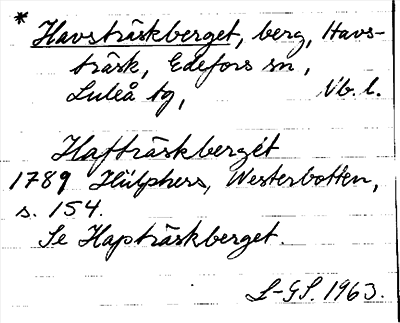 * Havsträskberget, berg, Havs-
träsk, Edefors sn,
Luleå tg, Nb. l.
Hafträskberget
1789 Hülphers, Westerbotten,
s. 154.
Se Hapträskberget.
L-GS. 1963.